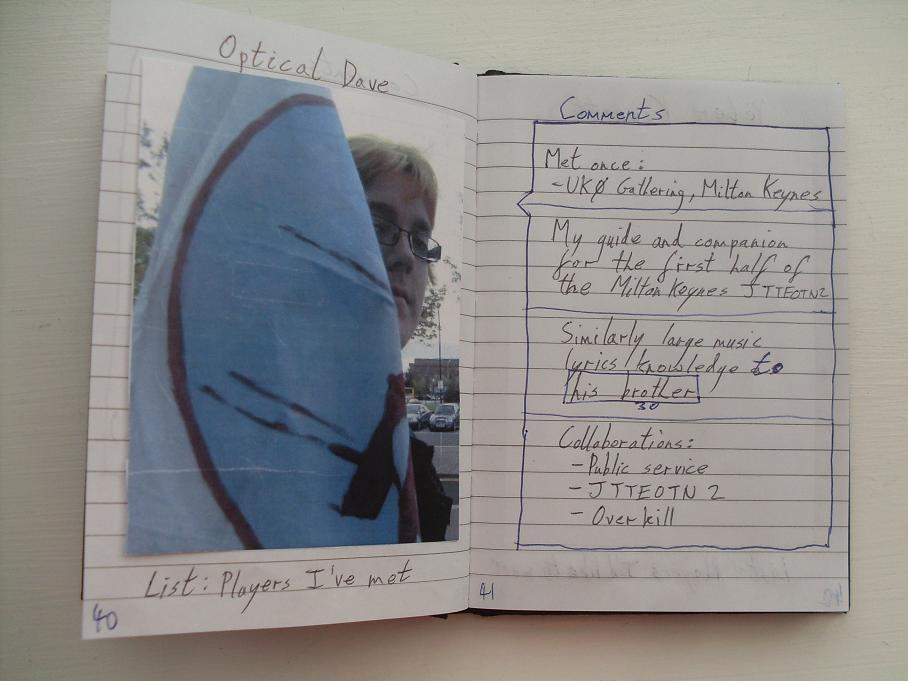 Optical Dave
List: Players I've met
40
Comments
Met once:
-UKØ Gathering, Milton Keynes
My guide and companion
for the first half of
the Milton Keynes JTTEOTN2
Similarly large music
lyrics knowledge to
his brother
30
Collaborations:
- Public service
- JTTEOTN 2
- Overkill
41